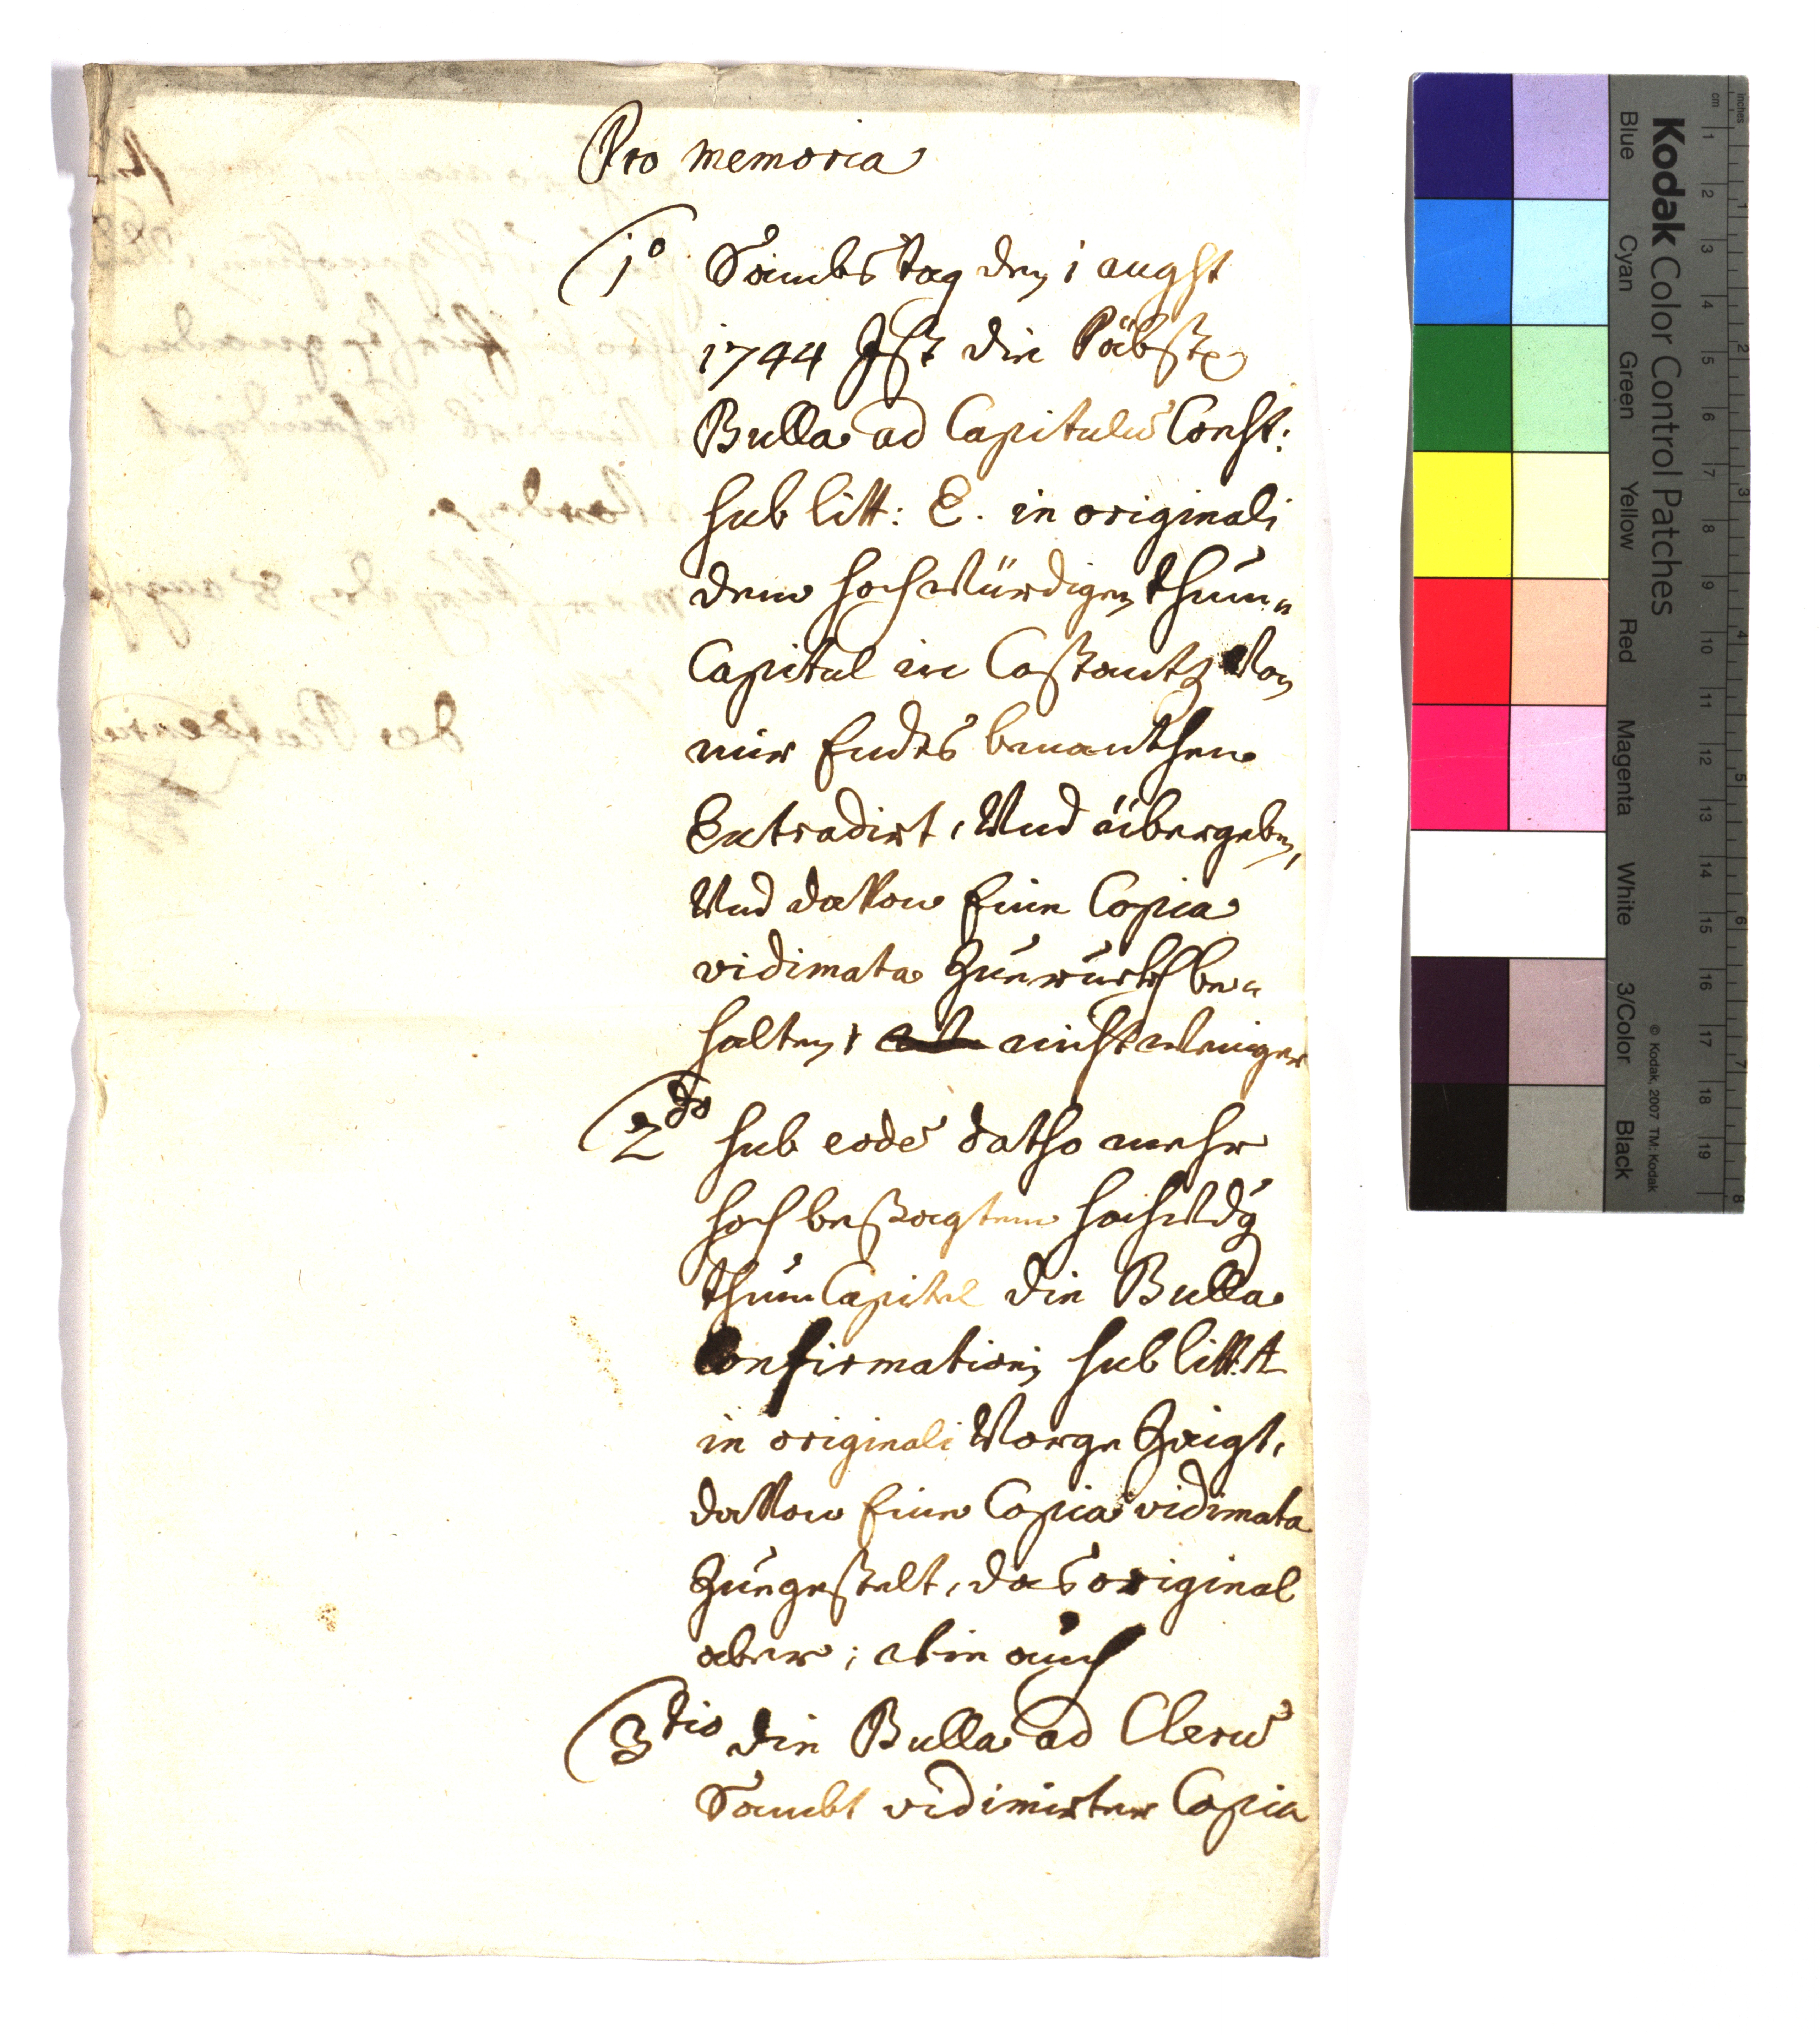 Pro memoria
1º Sambstag den 1 augst
1744 Jst die Päbstle
Bulla ad Capitulū Const:
sub litt: E. in originali
dem hochwürdigen thum„
Capitul in Costantz von
mir Endts benanthen
Extradirt, Und übergeben,
Und davon Eine Copia
vidimata Zuruckh be„
halten, nicht weniger
2do sub eodē datho mehr
hoch besagtem hochwdg
thum Capitel die Bulla
Confirmationis sub litt. A
in originali Vorge Zeigt,
davon Eine Copia vidimata
Zuegestelt, das original
aber; wie auch
3tio die Bulla ad Clerū
Sambt vidimirter Copia
Kodak Color Control Patches
Blue Cyan Green Yellow Red Magenta White 3/Color Black
© Kodak, 2007 TM: Kodak
inches 1 2 3 4 5 6 7 8
cm 1 2 3 4 5 6 7 8 9 10 11 12 13 14 15 16 17 18 19